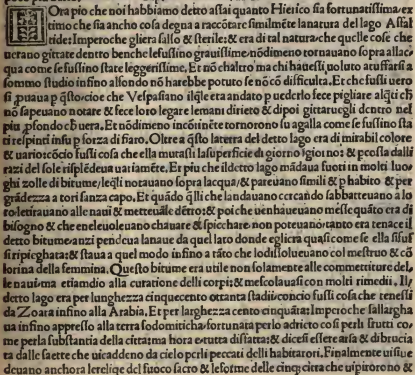 Ora pio che noi habbiamo detto assai quanto Hierico sia fortunatissima, ex
timo che sia ancho cosa degna a raccōtare similmēte la natura del lago Asfal
tide: Imperoche gliera salso & sterile: & era di tal natura che quelle cose che
ucrano gittate dentro benche fussino grauissime nōdimeno tornauano sopra allac,
qua come se fussino state leggerissime. Et nō chaltro ma chi hauessi uoluto atuffarsi a
sommo studio infino alfondo nō harebbe potuto se nō cō difficulta. Et che fussi uero
si ꝓuaua ꝑ q̄sto, cioe che Vespasiano ilqle era andato ꝑ uederlo fece pigliare alq̄ti ch̄
nō sapeuano notare & fece loro legare lemani dirieto & dipoi gittaruegli dentro nel
piu ꝓfondo ch̄ uera. Et nōdimeno incōtinēte tornorono su agalla come se fussino sta
ti respinti insu ꝑ forza di fiato. Oltre a q̄sto laterra del detto lago era di mirabil colore
& uario: cōcio fussi cosa che ella mutassi la superficie di giorno ī giorno: & ꝑcossa dalli
razi del sole risplēdeua uariamēte. Et piu che ildetto lago mādaua fuori in molti luo
ghi zolle di bitume, leq̄li notauano sopra lacqua, & pareuano simili & ꝑ habito & per
grādezza a tori sanza capo. Et quādo q̄lli che landauano cercādo sabbatteuano a lo
ro, letirauano alle naui & metteuāle dētro: & poi che uenhaueuano messe quāto era di
bisogno & che ene leuoleuano chauare & spicchare non poteuano: tanto era tenace il
detto bitume anzi pendeua lanaue da quel lato donde egli era quasi come se ella fussi
stripicghata: & staua a quel modo infino a tāto che lo dissolueuano col mestruo & cō
lorina della femmina. Questo bitume era utile non solamente alle commettiture del,
le naui: ma etiamdio alla curatione delli corpi: & mescolauasi con molti rimedii. Il,
detto lago era per lunghezza cinquecento ottanta stadii: concio fussi cosa che tenessi
da Zoara infino alla Arabia. Et per larghezza cento cinquāta: Imperoche sallargha
ua infino appresso alla terra sodomiticha, fortunata perlo adrieto cosi perli frutti co-
me perla substantia della citta: ma hora e tutta disfatta: & dicesi essere arsa & dibrucia
ta dalle saette che uicaddeno da cielo perli peccati delli habitatori. Finalmente uisiue
deuano anchora lereliqe del fuoco sacro & leforme delle cinq; citta che uipirorono &